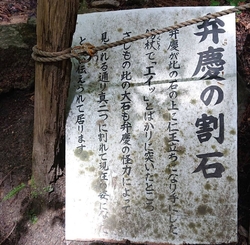 弁慶の割石
弁慶が此の石の上に仁王立ちになり手にした
杖で「エイッ」とばかりに突いたところ
さしもの此の大石も弁慶の怪力によって
見られる通り真二つに割れて現在の姿になった
と伝えられて居ります